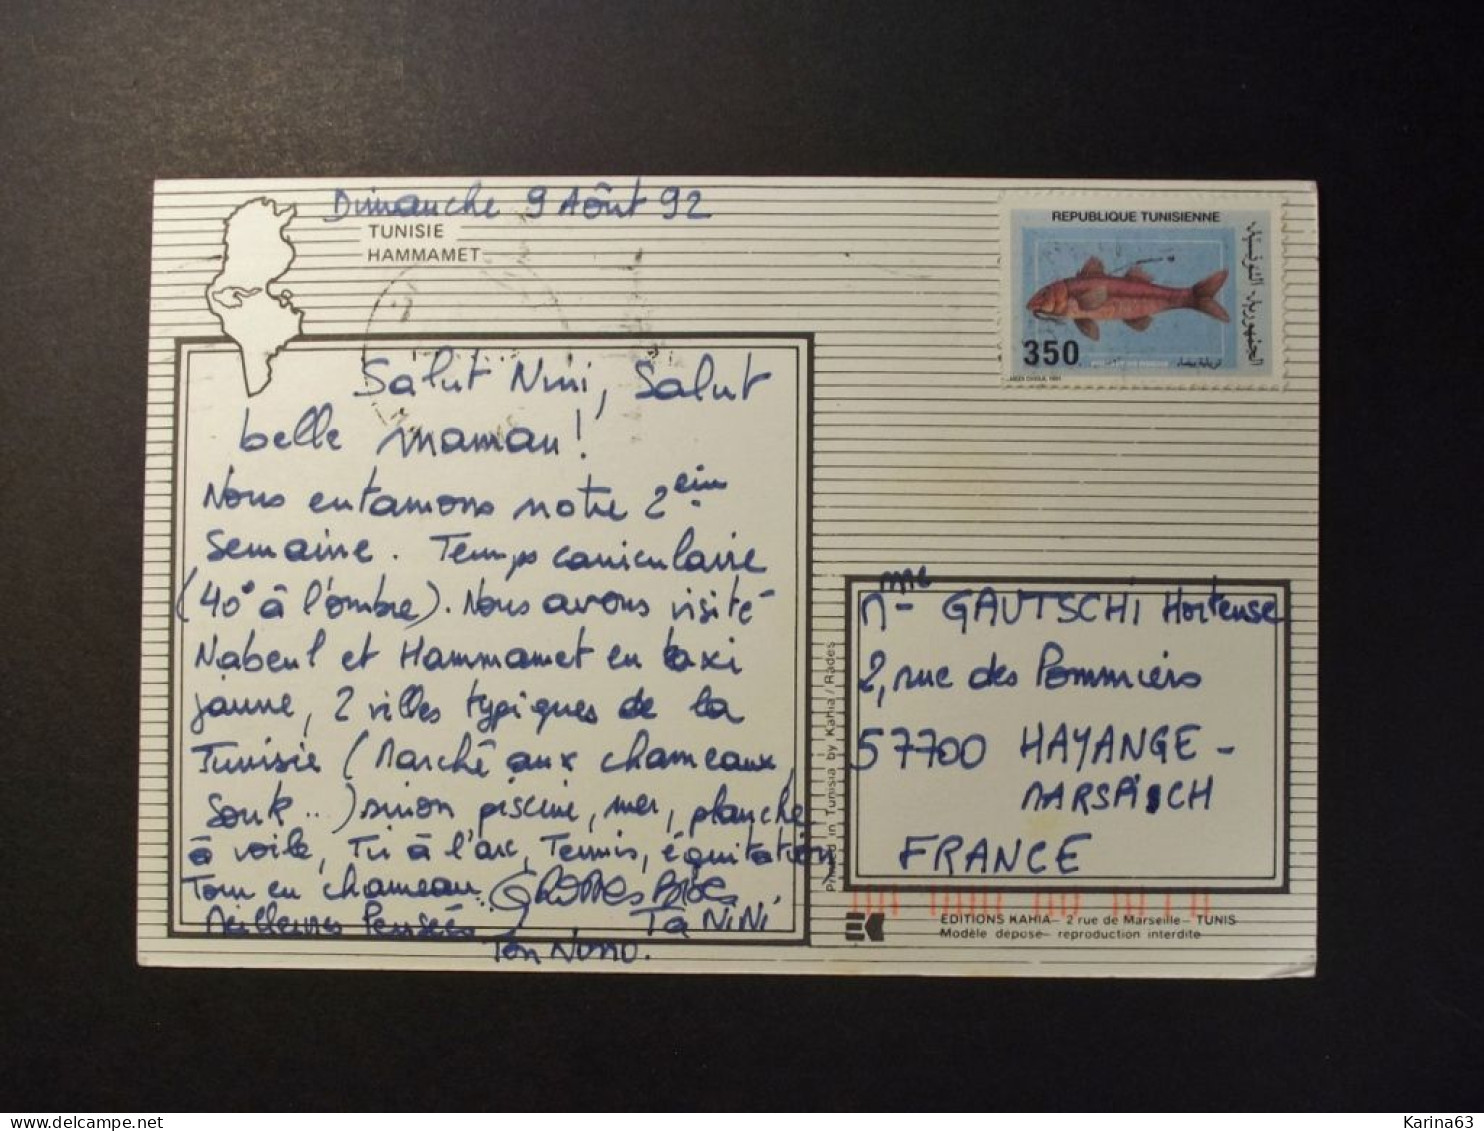 Dimanche 9 Aôut 92
TUNISIE
HAMMAMET
REPUBLIQUE TUNISIENNE
الجمهورية التونسية
350
Salut Nini, Salut
belle maman !
Nous entamons notre 2em
semaine. Temps caniculaire
(40° à l'ombre). Nous avons visité
Nabeul et Hammamet en taxi
jaune, 2 villes typiques de la
Tunisie (Marché aux chameaux,
Souk...) sinon piscine, mer, planche
à voile, Tir à l'arc, Tennis, équitation,
Tour en chameau. GROSSES BISES
Meilleures Pensées TA NINI
Ton Nono.
Mme GAUTSCHI Hortense
2, rue des Pommiers
57700 HAYANGE -
MARSPICH
FRANCE
Printed in Tunisia by Kahia / Rades
EDITIONS KAHIA - 2 rue de Marseille - TUNIS
Modèle déposé - reproduction interdite
delcampe.net
Karina63